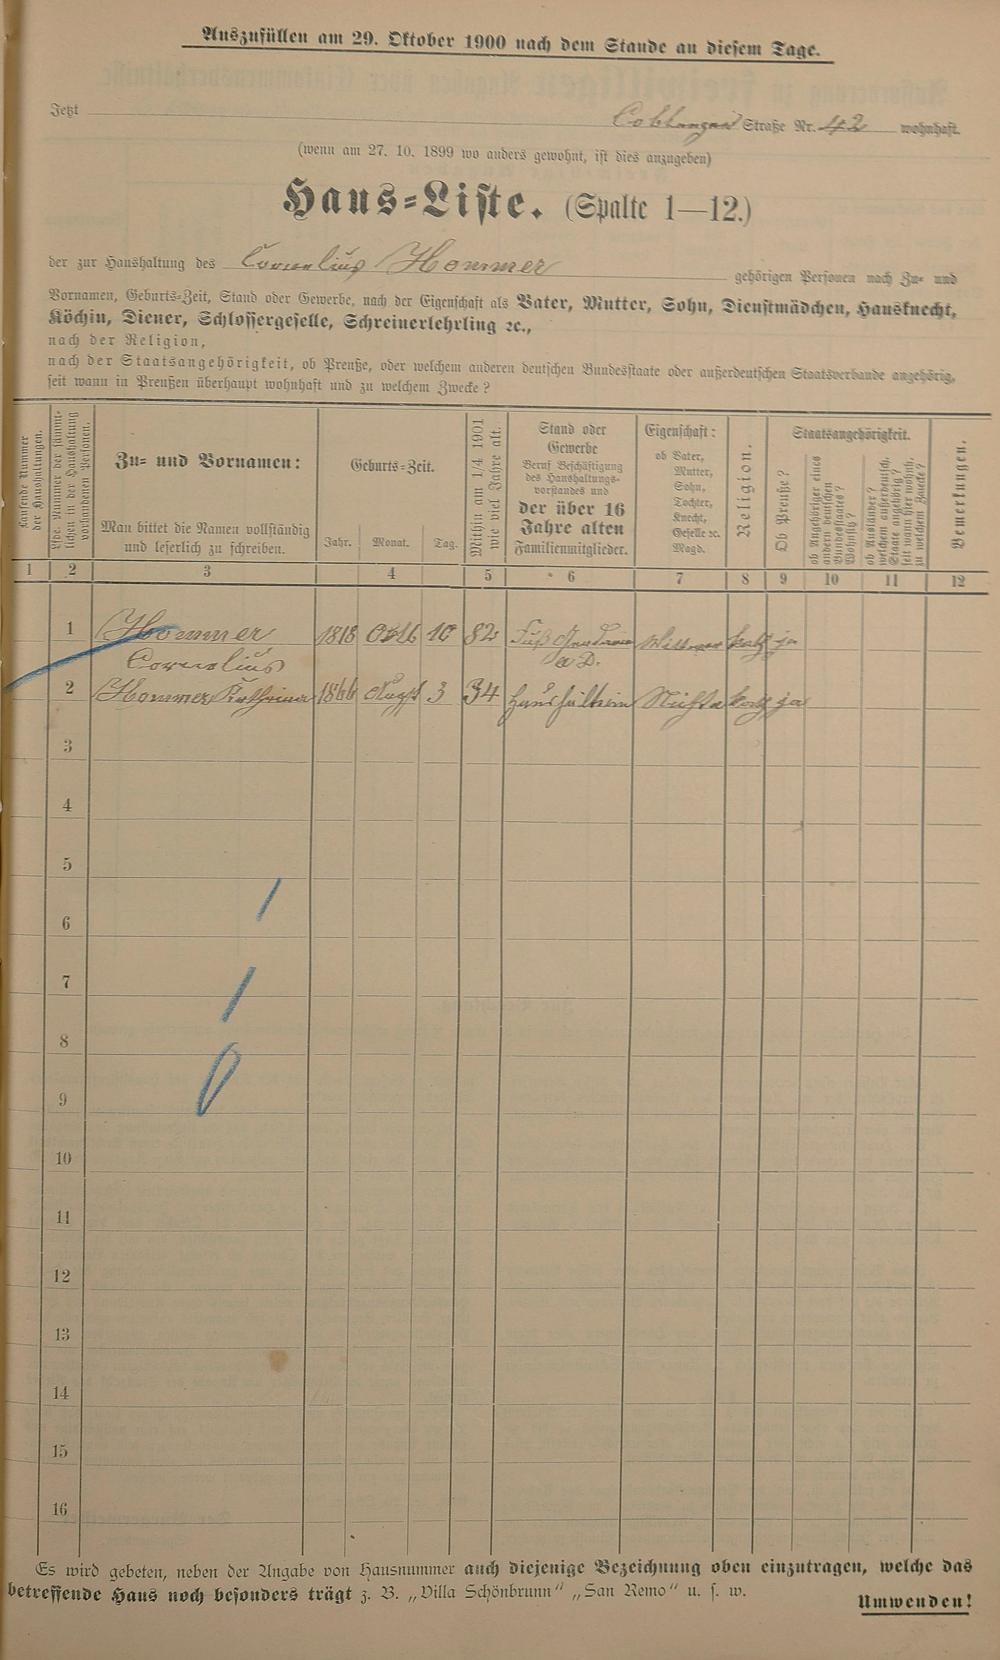 Auszufüllen am 29. Oktober 1900 nach dem Stande an diesem Tage.
Jetzt Coblenzer Straße Nr. 42 wohnhaft.
(wenn am 27. 10. 1899 wo anders gewohnt, ist dies anzugeben)
Haus-Liste. (Spalte 1—12.)
der zur Haushaltung des Cornelius Hommer gehörigen Personen nach Zu- und
Vornamen, Geburts-Zeit, Stand oder Gewerbe, nach der Eigenschaft als Vater, Mutter, Sohn, Dienstmädchen, Hausknecht,
Köchin, Diener, Schlossergeselle, Schreinerlehrling ꝛc.,
nach der Religion,
nach der Staatsangehörigkeit, ob Preuße, oder welchem anderen deutschen Bundesstaate oder außerdeutschen Staatsverbande angehörig,
seit wann in Preußen überhaupt wohnhaft und zu welchem Zwecke?
Laufende Nummer
der Haushaltungen.
Lfde. Nummer der sämmt-
lichen in der Haushaltung
vorhandenen Personen.
Zu- und Vornamen:
Man bittet die Namen vollständig
und leserlich zu schreiben.
Geburts-Zeit.
Jahr. Monat. Tag.
Mithin am 1/4 1901
wie viel Jahre alt.
Stand oder
Gewerbe
Beruf Beschäftigung
des Haushaltungs-
vorstandes und
der über 16
Jahre alten
Familienmitglieder.
Eigenschaft:
ob Vater,
Mutter,
Sohn,
Tochter,
Knecht,
Geselle ꝛc.
Magd.
Religion.
Staatsangehörigkeit.
Ob Preuße?
ob Angehöriger eines
andern deutschen
Bundesstaates?
Wohnsitz?
ob Ausländer?
welchem außerdeutsch.
Staate angehörig?
seit wann hier wohnh.
zu welchem Zwecke?
Bemerkungen.
1 2 3 4 5 6 7 8 9 10 11 12
1 Hommer 1818 10 82 Wittwer kath ja
Cornelius a. D.
2 Hommer Katharina 1866 Augst 3 34 Haushälterin Nichte kath ja
3
4
5
6
7
8
9
10
11
12
13
14
15
16
Es wird gebeten, neben der Angabe von Hausnummer auch diejenige Bezeichnung oben einzutragen, welche das
betreffende Haus noch besonders trägt z. B. „Villa Schönbrunn" „San Remo" u. s. w.
Umwenden!